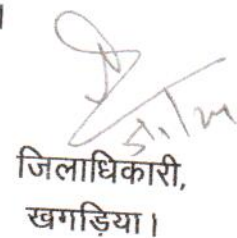 ।
जिलाधिकारी,
खगड़िया।